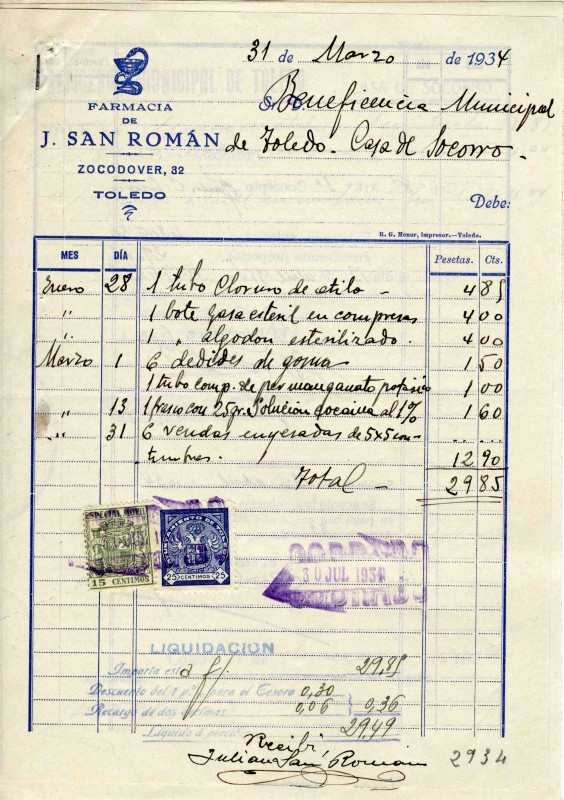 31 de Marzo de 1934
FARMACIA
DE
J. SAN ROMÁN
ZOCODOVER, 32
TOLEDO
Beneficencia Municipal
de Toledo. Casa de Socorro.
Debe:
R. G. Menor, Impresor.—Toledo.
MES DÍA Pesetas. Cts.
Enero 28 1 tubo Cloruro de etilo 4 85
" 1 bote gasa esteril en compresas 4 00
" 1 " algodon esterilizado. 4 00
Marzo 1 6 dediles de goma 1 50
1 tubo comp. de permanganato potásico 1 00
" 13 1 frasco con 25 gr. Solución cocaina al 1% 1 60
" 31 6 vendas enyesadas de 5x5 cen-
timtros. 12 90
Total 29 85
ESPECIAL MOVIL
15 CENTIMOS
25 CENTIMOS 25
30 JUL 1934
LIQUIDACION
Importa esta f/. 29,85
Descuento del 1 p.% para el Tesoro 0,30
Recargo de dos décimas 0,06 0,36
Líquido a percibir 29,49
Recibí,
Julian San Román
2934